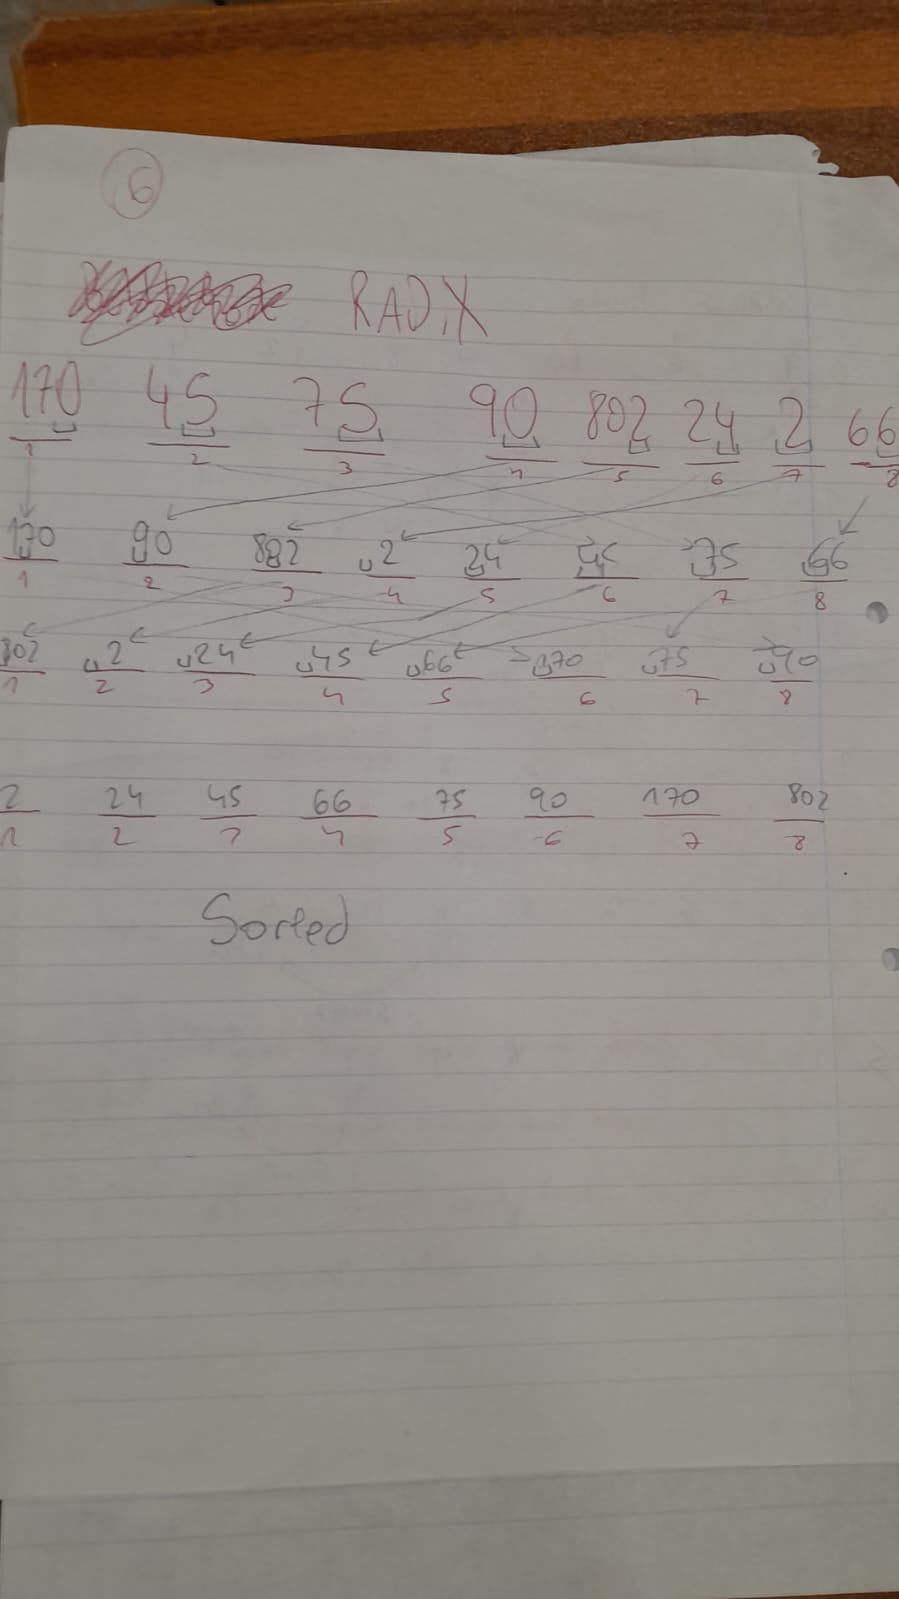 6
RADIX
170 45 75 90 802 24 2 66
1 2 3 4 5 6 7 8
170 90 802 2 24 45 75 66
1 2 3 4 5 6 7 8
802 2 24 45 66 170 75 90
1 2 3 4 5 6 7 8
2 24 45 66 75 90 170 802
1 2 3 4 5 6 7 8
Sorted